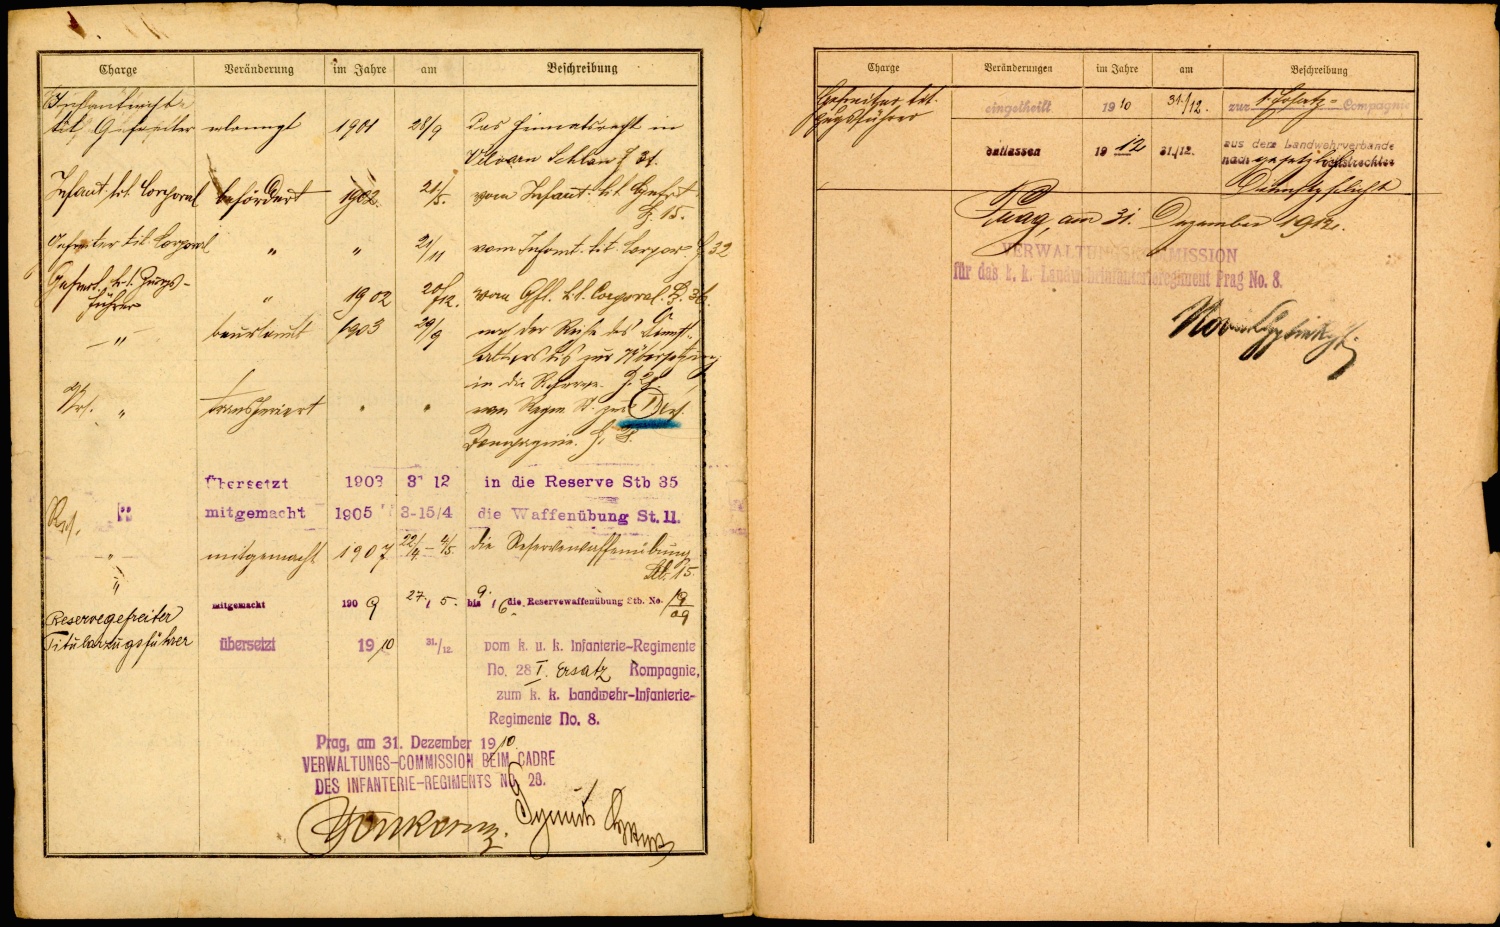 Charge Veränderung im Jahre am Beschreibung
Infanterist
tit. Gefreiter erlangt 1901 28/9 das Heimatsrecht in
Schlan Z 31.
Infant. tit. Corporal befördert 1902 21/5. vom Infant. tit. Gefrt.
Z. 15.
Gefreiter tit. Corporal " " 21/11 vom Infant. tit. Corpor. Z 32
Gefreit. tit. Zugs-
führer " 1902 20/12. vom Gft. tit. Corporal. Z. 36.
" beurlaubt 1903 29/9 nach der Reihe des
bis zur Übersetzung
in die Reserve. Z. 29.
" transferiert " " von Regm. zur
Compagnie.
Übersetzt 1903 31 12 in die Reserve Stb 35
Res. mitgemacht 1905 3-15/4 die Waffenübung St. 11.
" mitgemacht 1907 22/4 – 4/5 die Reservewaffenübung
Stb. 15.
"
mitgemacht 1909 27. / 5. bis 9. / 6. die Reservewaffenübung Stb. No. 19/09
Reservegefreiter
Titularzugsführer übersetzt 1910 31./12. vom k. u. k. Infanterie-Regimente
No. 28 I. Ersatz Kompagnie,
zum k. k. Landwehr-Infanterie-
Regimente No. 8.
Prag, am 31. Dezember 1910.
VERWALTUNGS-COMMISSION BEIM CADRE
DES INFANTERIE-REGIMENTS No 28.
Charge Veränderungen im Jahre am Beschreibung
Gefreiter tit.
Zugsführer eingetheilt 1910 31./12. zur 1. Ersatz- Compagnie
entlassen 1912 31./12. aus dem Landwehrverbande
nach gesetzlich vollstreckter
Dienstpflicht
Prag, am 31. Dezember 1912.
VERWALTUNGSCOMMISSION
für das k. k. Landwehrinfanterieregiment Prag No. 8.